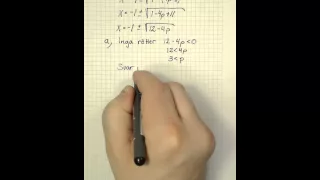 x = -1 ± √1-4p+11
x = -1 ± √12-4p
a, Inga rötter 12-4p<0
12<4p
3<p
Svar